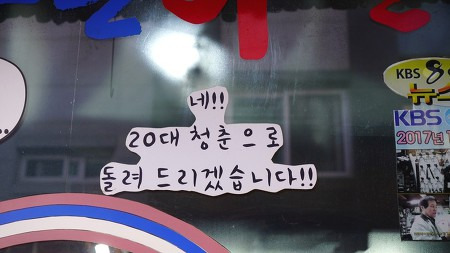 네!!
20대 청춘으로
돌려 드리겠습니다!!
KBS 8
뉴스
KBS
2017년